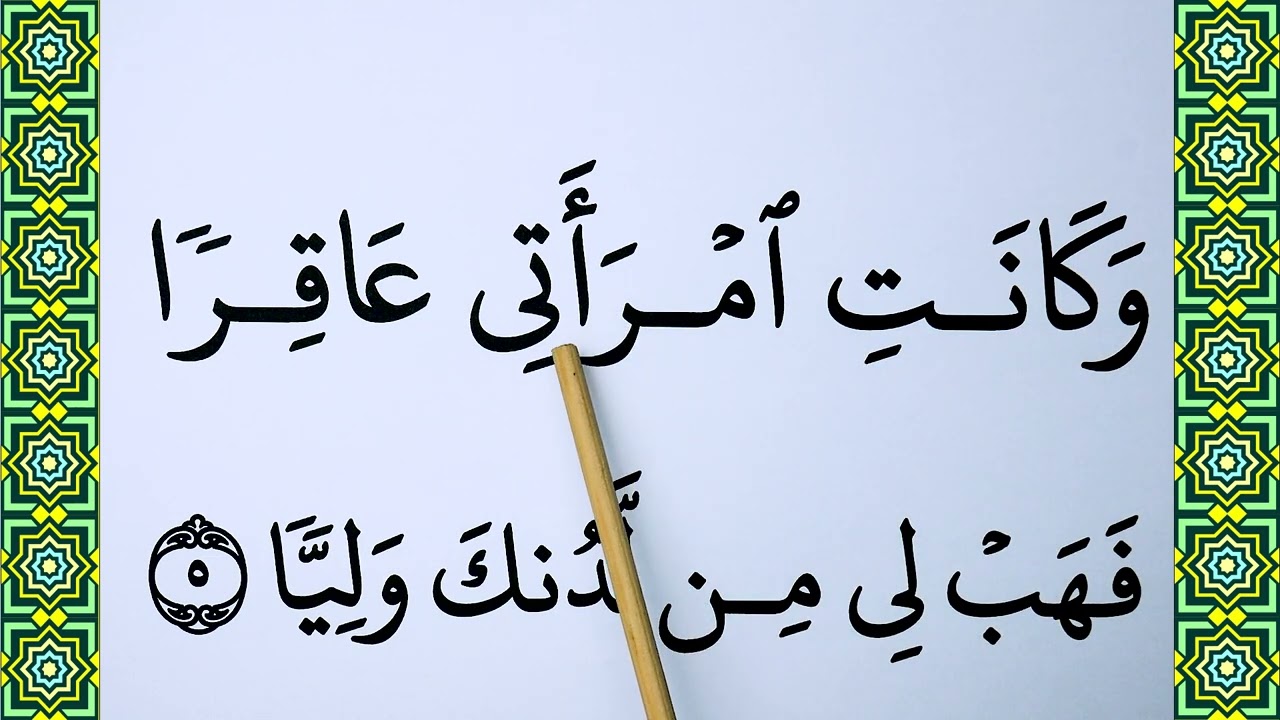 وَكَانَتِ ٱمۡرَأَتِى عَاقِرٗا
فَهَبۡ لِي مِن لَّدُنكَ وَلِيّٗا ٥